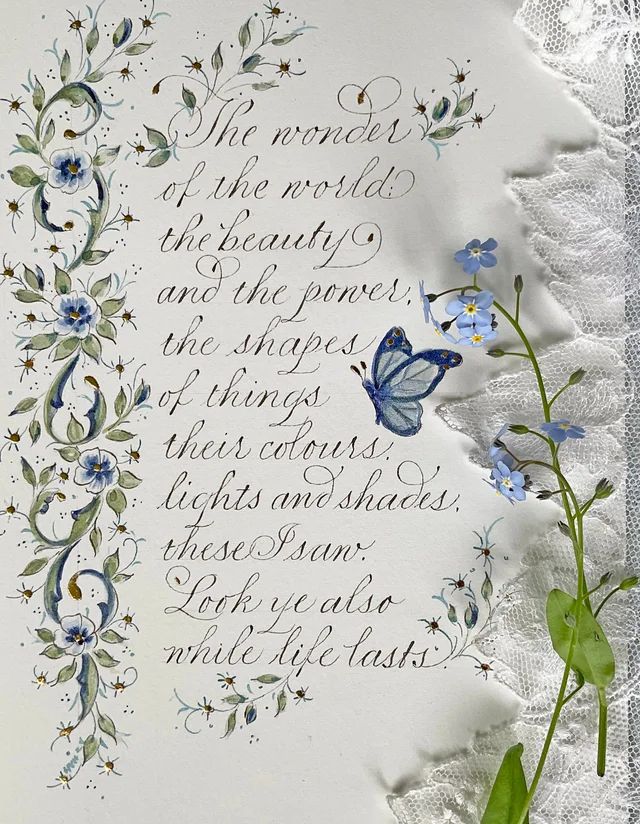 The wonder
of the world
the beauty
and the power,
the shapes
of things
their colours,
lights and shades,
these I saw.
Look ye also
while life lasts.